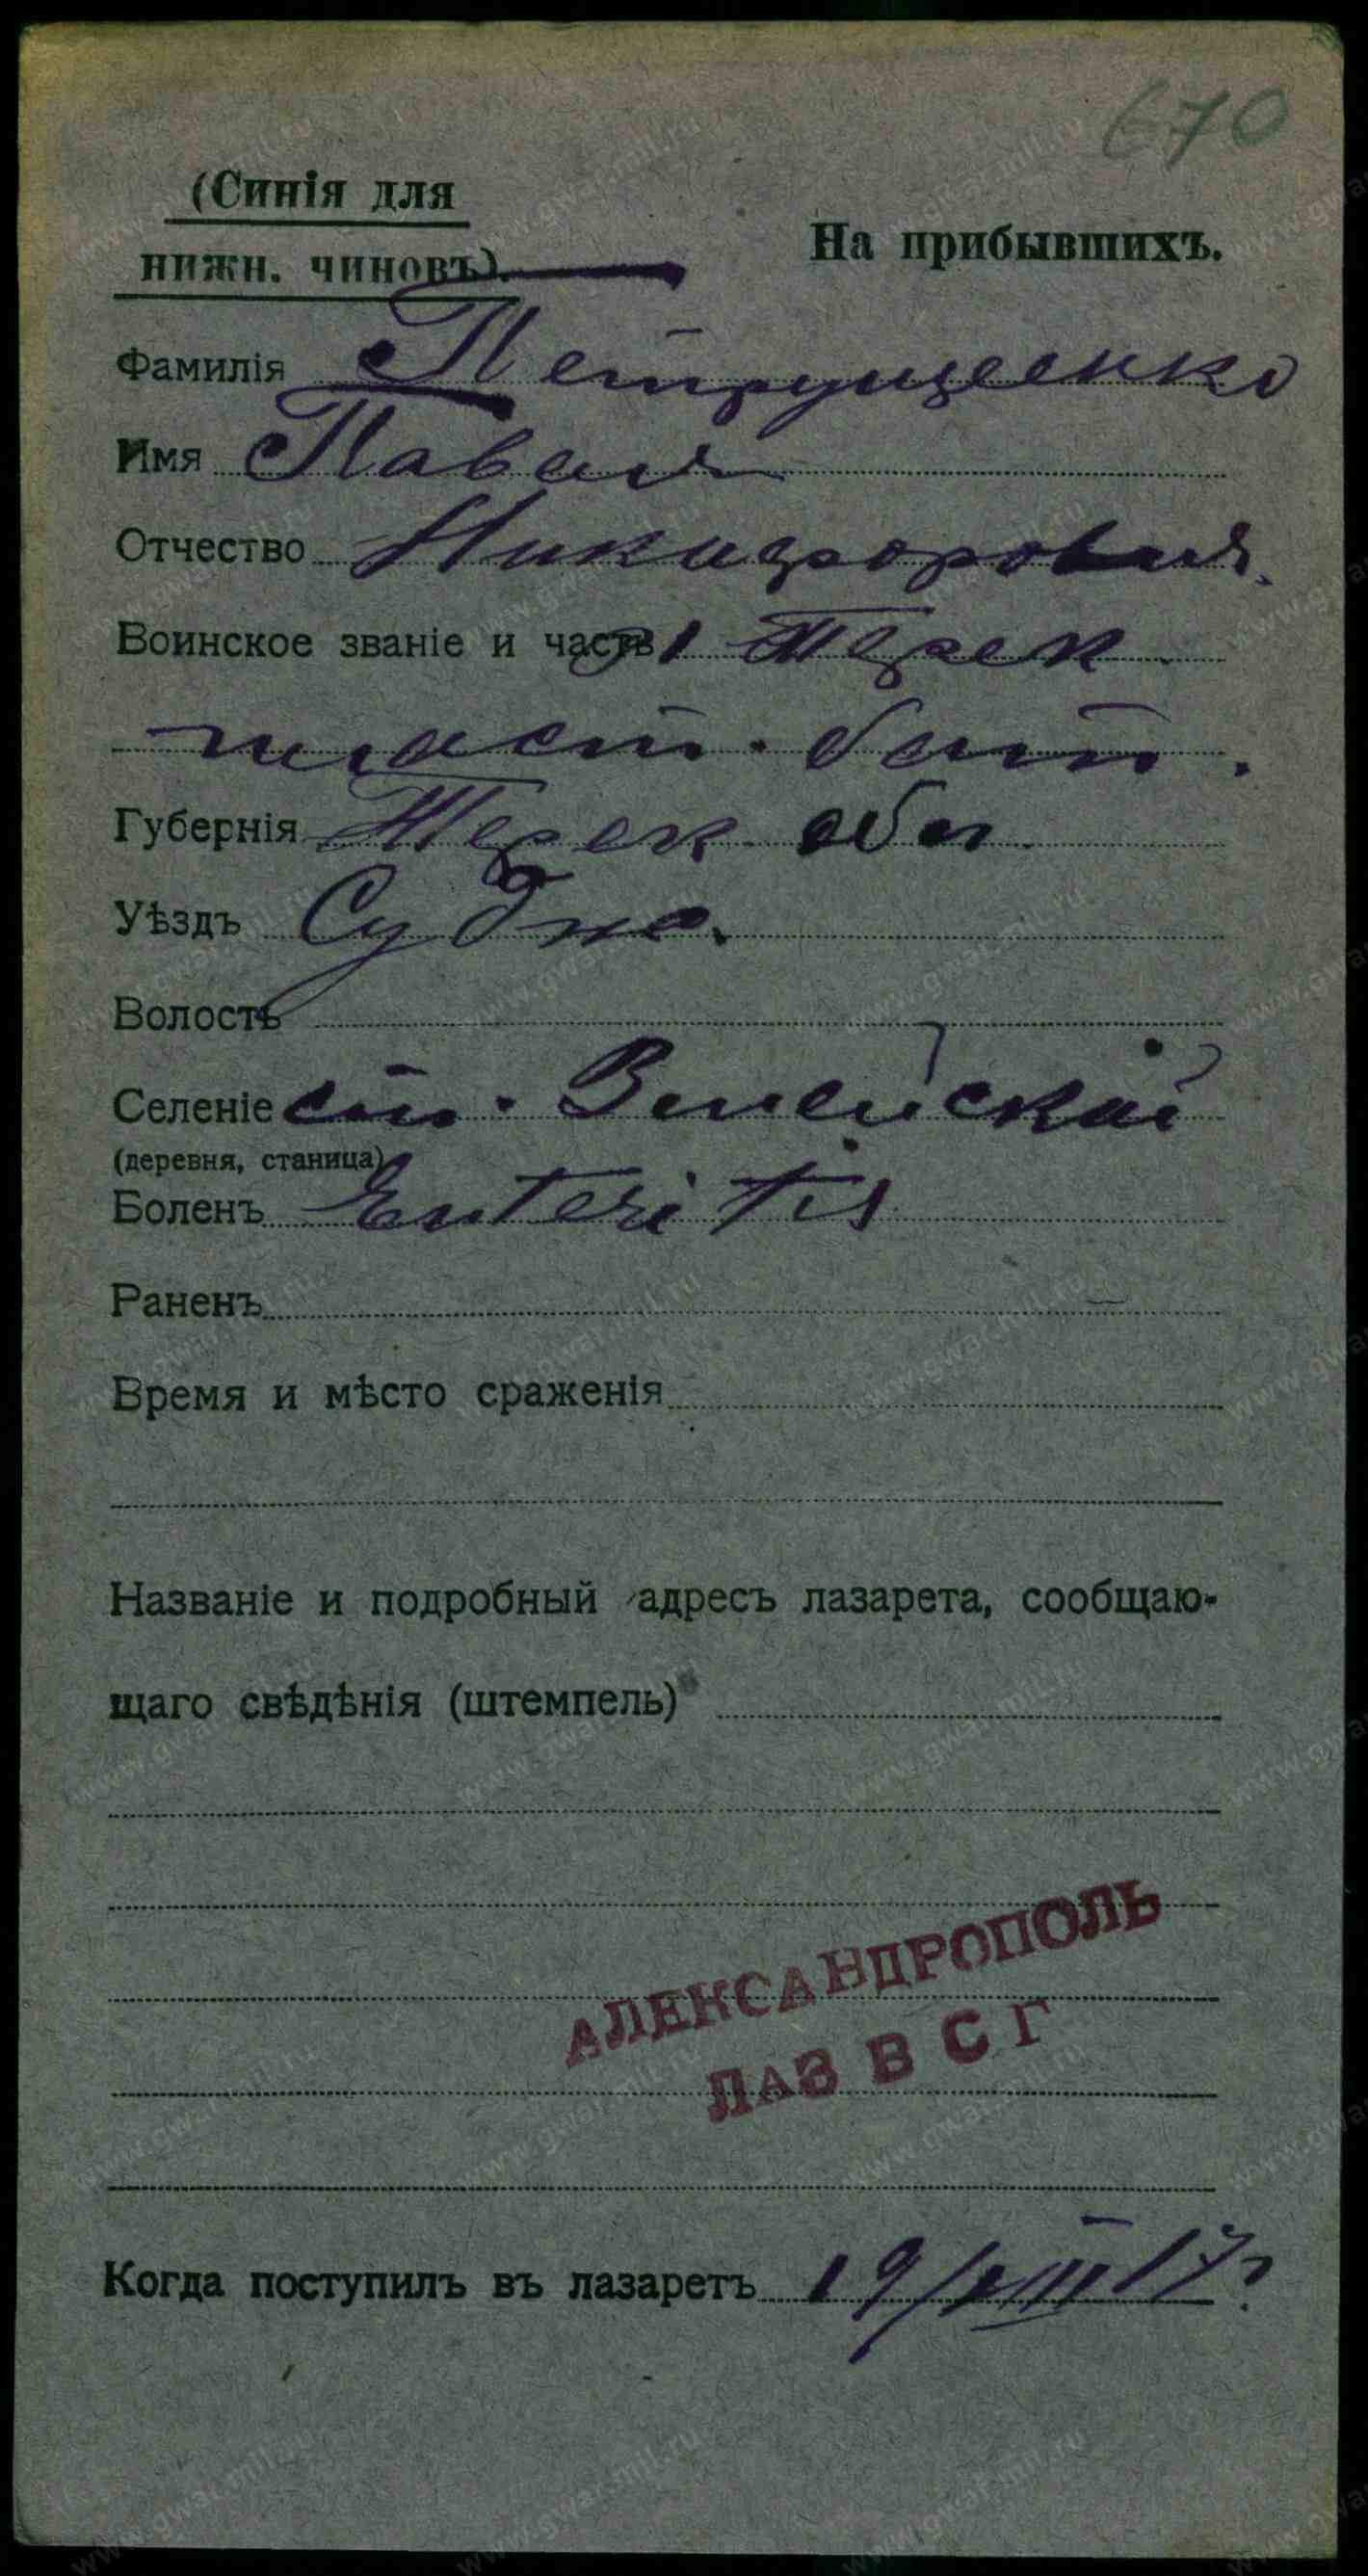 670
(Синія для
нижн. чиновъ).
На прибывшихъ.
Фамилія Петрущеенко
Имя Павелъ
Отчество Никифоровичъ.
Воинское званіе и часть 1 Терек
пласт. бат.
Губернія Терек обл
Уѣздъ
Волость
Селеніе ст. Змейской
(деревня, станица)
Боленъ Enteritis
Раненъ
Время и мѣсто сраженія
Названіе и подробный адресъ лазарета, сообщаю-
щаго свѣдѣнія (штемпель)
АЛЕКСАНДРОПОЛЬ
ЛАЗ В С Г
Когда поступилъ въ лазаретъ 19/VIII 17 г